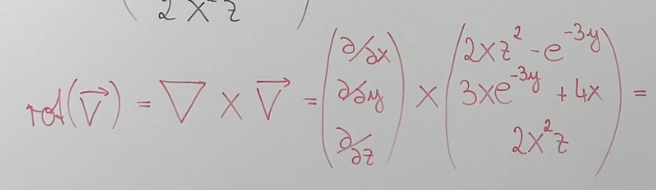 2x²z
rot(V⃗) = ∇ × V⃗ = (∂/∂x ∂/∂y ∂/∂z) × (2xz² - e⁻³ʸ 3xe⁻³ʸ + 4x 2x²z) =